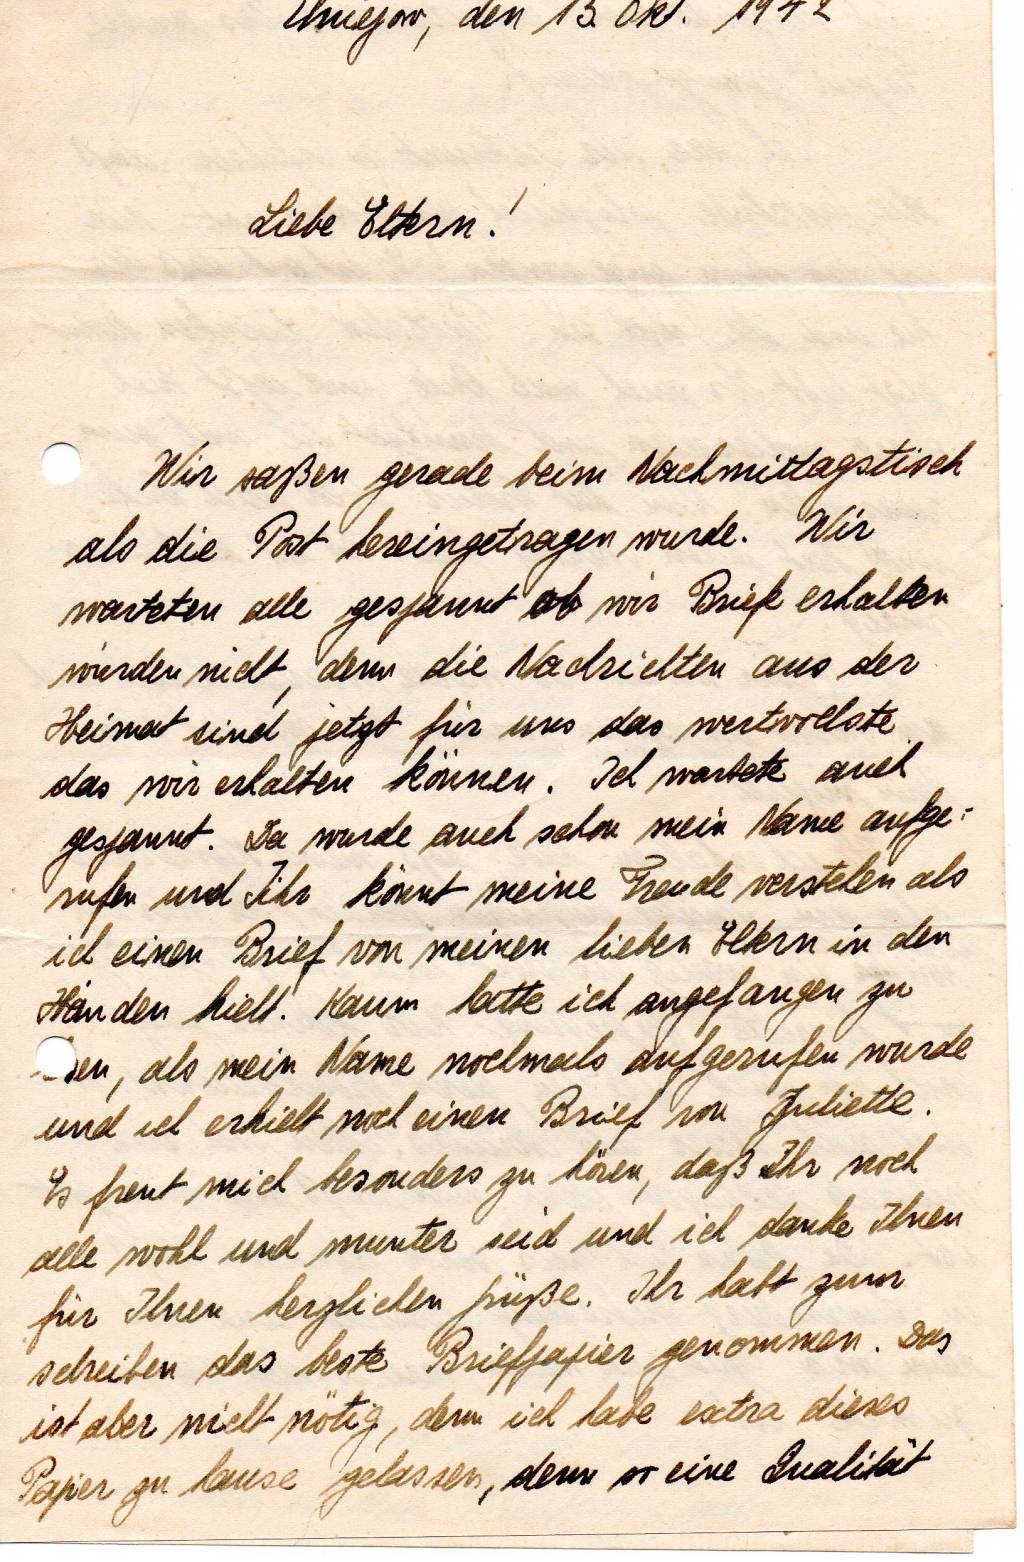 Uniejow, den 13. Okt. 1942
Liebe Eltern!
Wir saßen gerade beim Nachmittagstisch
als die Post hereingetragen wurde. Wir
warteten alle gespannt ob wir Briefe erhalten
würden nicht, denn die Nachrichten aus der
Heimat sind jetzt für uns das wertvollste
das wir erhalten können. Ich wartete auch
gespannt. Da wurde auch schon mein Name aufge-
rufen und Ihr könnt meine Freude verstehen als
ich einen Brief von meinen lieben Eltern in den
Händen hielt. Kaum hatte ich angefangen zu
sen, als mein Name nochmals aufgerufen wurde
und ich erhielt noch einen Brief von Juliette.
Es freut mich besonders zu hören, daß Ihr noch
alle wohl und munter seid und ich danke Ihnen
für Ihnen herzlichen füße. Ihr habt zum
schreiben das beste Briefpapier genommen. Das
ist aber nicht nötig, denn ich habe extra dieses
Papier zu hause gelassen, denn so eine Qualität